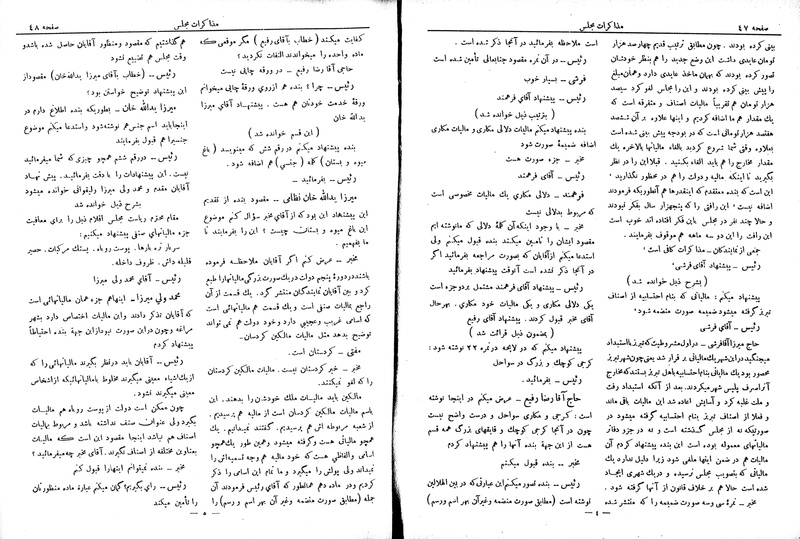 صفحه ۴۷
مذاکرات مجلس
بینی کرده بودند . چون مطابق ترتیب قدیم چهارصد هزار
تومان عایدی داشت این وضع جدید را هم بنظر خودشان
تصور کرده بودند که بهمان ماخذ عایدی دارد و همان مبلغ
را پیش بینی کرده بودند و این را مجلس لغو کرد سیصد
هزار تومان هم تقریباً مالیات اصناف و متفرقه است که
یک مقدار هم ما اضافه کردیم و اینها علاوه بر آن ششصد
هفصد هزار تومانی است که در بودجه پیش بینی شده است
بعلاوه وقتی شما شروع کردید بالغاء مالیاتها بالاخره یک
مقدار مخارج را هم باید الغاء بکنید . قبلا این را در نظر
بگیرید تا اینکه مالیه و دولت را هم در محظور نگذارید
این است که بنده معتقدم که اینقدرها هم آنطوریکه فرمودند
اضافه نیست این رأفتی را که پنجهزار سال بفکر نبودند
و حالا چند نفر در مجلس باین فکر افتاده اند خوب است
این رأفت را این دو سه ماهه هم موقوف بفرمایند .
جمعی از نمایندگان ـ مذاکرات کافی است
رئیس ـ پیشنهاد آقای قرشی
(بشرح ذیل خوانده شد)
پیشنهاد میکنم : مالیاتی که بنام احتسابیه از اصناف
تبریز گرفته میشود ضمیمه صورت منضمه شود
رئیس ـ آقای قرشی
حاج میرزا آقا قرشی ـ در اول مشروطیت که تبریز با استبداد
میجنگید در این شهر یک مالیاتی برقرار شد یعنی چون شهر تبریز
محصور بود یک مالیاتی بنام احتسابیه باهل تبریز بستند که مخارج
آنرا صرف پلیس شهر میکردند. بعد از آنکه استبداد رفت
و ملت غلبه کرد و آسایش اعاده شد این مالیات باقی ماند
و فعلا از اصناف تبریز بنام احتسابیه گرفته میشود در
صورتیکه نه از مجلس گذشته است و نه در جزو دفاتر
مالیاتهای معموله بوده است این بنده پیشنهاد کردم آن
مالیات هم در ضمن اینها ملغی شود زیرا دلیل ندارد یک
مالیاتی که بتصویب مجلس نرسیده و در یک شهری ایجاد
شده است حالا هم بر خلاف قانون از آنها گرفته شود .
مخبر ـ نمرهٔ سی و سه صورت ضمیمه را که منتشر شده
است ملاحظه بفرمائید در آنجا ذکر شده است .
رئیس ـ در آن نمره مقصود جنابعالی تأمین شده است
قرشی ـ بسیار خوب
رئیس ـ پیشنهاد آقای فرهمند
(بترتیب ذیل خوانده شد)
بنده پیشنهاد میکنم مالیات دلالی مکاری و مالیات مکاری
اضافه ضمیمهٔ صورت شود
مخبر ـ جزء صورت هست
رئیس ـ آقای فرهمند
فرهمند ـ دلالی مکاری یک مالیات مخصوصی است
که مربوط بدلالی نیست
مخبر ـ با وجود اینکه آن کلمهٔ دلالی که ما نوشته ایم
مقصود ایشان را تامین میکند بنده قبول میکنم ولی
استدعا میکنم از آقایان که بصورت مراجعه بفرمائید اگر
در آنجا ذکر نشده است آنوقت پیشنهاد بفرمائید
رئیس ـ پیشنهاد آقای فرهمند مشتمل بر دو جزء است
یکی دلالی مکاری و یکی مالیات خود مکاری . بهر حال
آقای مخبر قبول کردند . پیشنهاد آقای رفیع
(بمضمون ذیل قرائت شد)
پیشنهاد میکنم که در لایحه در نمره ۲۲ نوشته شود :
کرجی کوچک و بزرگ در سواحل
رئیس ـ بفرمائید .
حاج آقا رضا رفیع ـ عرض میکنم در اینجا نوشته
است : کرجی و مکاری سواحل و درست واضح نیست
چون در آنجا کرجی کوچک و قایقهای بزرگ همه قسم
هست از این جهة بنده آنها را هم پیشنهاد کردم
مخبر ـ بنده قبول میکنم
رئیس ـ بنده تصور میکنم این عبارتی که در بین الهلالین
نوشته است (مطابق صورت منضمه و غیر آن بهر اسم و رسم)
ـ ٤ ـ
مذاکرات مجلس
صفحه ٤٨
کفایت میکند (خطاب بآقای رفیع) مگر موقعی که
ماده واحده را میخواندند التفات نکردید ؟
حاجی آقا رضا رفیع ـ در ورقه چاپی نیست
رئیس ـ چرا ؟ بنده هم از روی ورقهٔ چاپی میخوانم
ورقهٔ خدمت خودتان هم هست . پیشنهاد آقای میرزا
یدالله خان
(این قسم خوانده شد)
بنده پیشنهاد میکنم در رقم شش که مینویسد (باغ
میوه و بستان) کلمه (جنسی) هم اضافه شود .
رئیس ـ بفرمائید ـ
میرزا یدالله خان نظامی ـ مقصود بنده از تقدیم
این پیشنهاد این بود که از آقای مخبر سؤال کنم موضوع
این باغ میوه و بستان چیست ؟ این را بفرمایند تا
ما بفهمیم .
مخبر ـ عرض کنم اگر آقایان ملاحظه فرموده
باشند در دورهٔ پنجم دولت در یک صورت بزرگی مالیاتها را طبع
کرد و بین آقایان نمایندگان منتشر کرد . یک قسمت از آن
راجع بمالیات صنفی است و یک قسمت هم مالیاتهائی است
که اسامی غریب و عجیبی دارد و خود دولت هم نمی تواند
توضیح بدهد مثل مالیات مالکین کردستان.
مفتی ـ کردستان است .
مخبر ـ خیر کردستان نیست. مالیات مالکین کردستان
را که لغو نمیکنند.
مالکین باید مالیات ملک خودشان را بدهند . این
باسم مالیات مالکین کردسان است از مالیه هم پرسیدیم .
از شعبه مربوطه اش هم پرسیدیم. گفتند نمیدانیم . یک
همچو مالیاتی هست و گرفته میشود و همین طور یک همچو
اسامی و الفاظی هست که خود مالیه هم وجه تسمیه اش را
نمیداند ولی پولش را میگیرد و ما تمام این اسامی را ذکر
کردیم و در ماده دهم همانطور که آقای رئیس فرمودند آن
جمله (مطابق صورت منضمه و غیر آن بهر اسم و رسم) را
هم گذاشتیم که مقصود و منظور آقایان حاصل شده باشد و
وقت مجلس هم تضییع نشود
رئیس ـ (خطاب بآقای میرزا یدالله خان) مقصود از
این پیشنهاد توضیح خواستن بود؟
میرزا یدالله خان ـ بطوریکه بنده اطلاع دارم در
اینجا باید اسم جنس هم نوشته شود و استدعا میکنم موضوع
جنس را هم قبول بفرمایند
رئیس ـ در رقم ششم همچو چیزی که شما میفرمائید
نیست. این پیشنهادات را با دقت بفرمائید. پیشنهاد
آقایان مقدم و محمد ولی میرزا و لیقوانی خوانده میشود
بشرح ذیل خوانده شد
مقام محترم ریاست مجلس اقلام ذیل را برای معافیت
جزء مالیاتهای صنفی پیشنهاد میکنیم :
سربار تره بارها . پوست روباه . پستک مرکبات . حصیر
قلیله داش . ظروف داخله .
رئیس ـ آقای محمد ولی میرزا
محمد ولی میرزا ـ اینها هم جزء همان مالیاتهائی است
که آقایان تذکر دادند و این مالیات اختصاص دارد بشهر
مراغه و چون در این صورت نبود از این جهة بنده احتیاطاً
پیشنهاد کردم
رئیس ـ آقایان باید در نظر بگیرند مالیاتهائی را که
از یک اشیاء معینی میگیرند مخلوط با مالیاتهائیکه از اشخاص
معینی میگیرند نشود .
چون ممکن است دولت از پوست روباه هم مالیات
بگیرد ولی عنوان صنف نداشته باشد و مربوط بمالیات
اصناف هم نباشد اینجا مقصود این است که مالیات
بعناوین مختلفه از اصناف نگیرند. آقای مخبر چه میفرمائید ؟
مخبر ـ بنده نمیتوانم اینها را قبول کنم
رئیس ـ رأی بگیریم؟ گمان میکنم عبارة ماده منظورتان
را تأمین میکند
ـ ٥ ـ